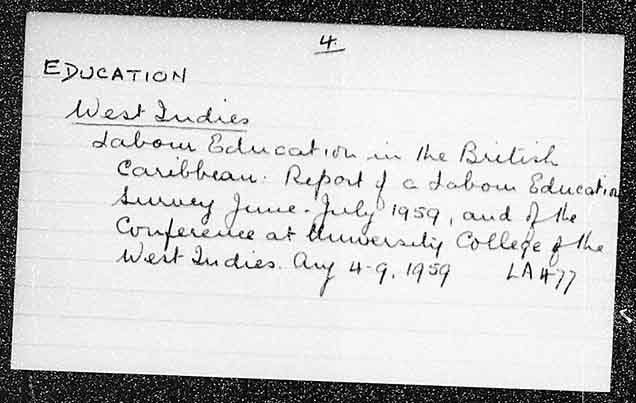 4.
EDUCATION
West Indies
Labour Education in the British
Caribbean. Report of a Labour Education
Survey June-July 1959, and of the
Conference at University College of the
West Indies. Aug 4-9, 1959 LA477